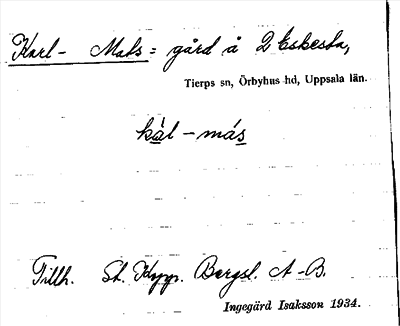 Karl-Mats = gård å 2 Eskesta,
Tierps sn, Örbyhus hd, Uppsala län.
kàl-más
Tillh. St. Kopp. Bergsl. A-B.
Ingegärd Isaksson 1934.